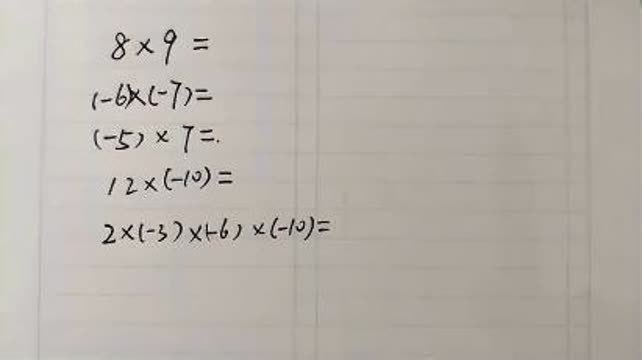 8×9=
(-6)×(-7)=
(-5)×7=.
12×(-10)=
2×(-3)×(-6)×(-10)=